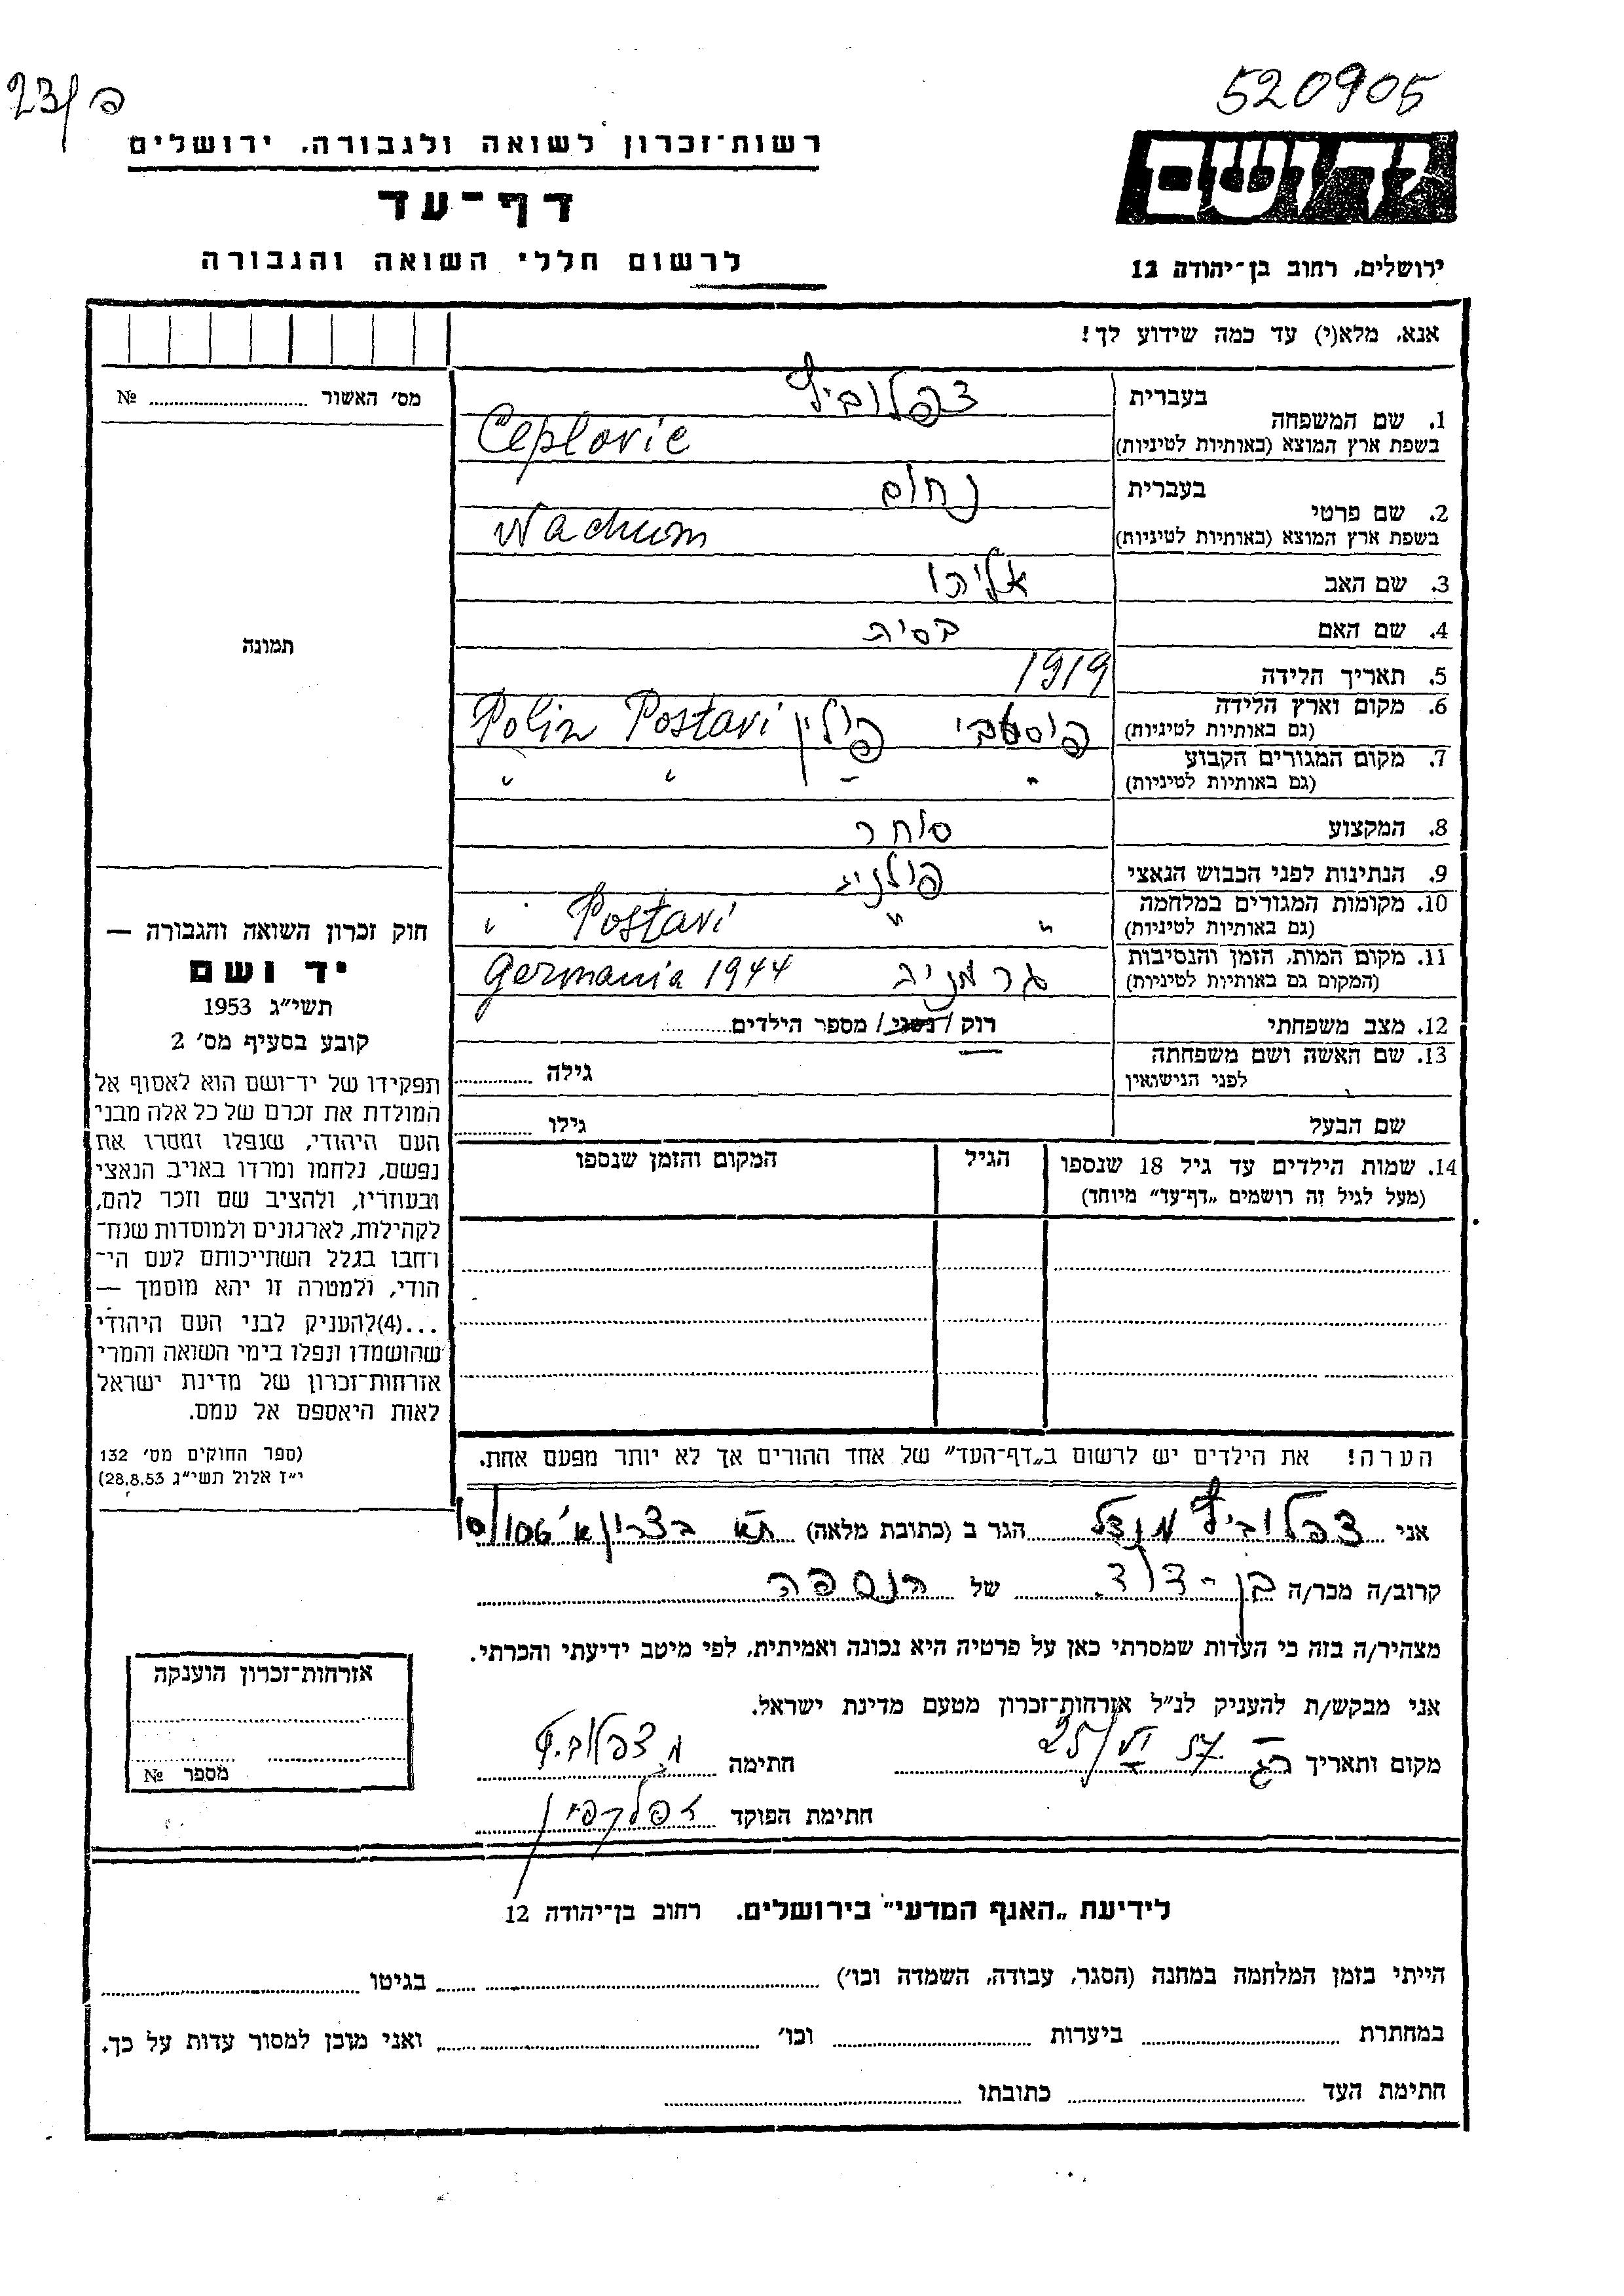 23/פ
520905
רשות־זכרון לשואה ולגבורה, ירושלים
דף־עד
לרשום חללי השואה והגבורה
יד ושם
ירושלים, רחוב בן־יהודה 12
אנא, מלא(י) עד כמה שידוע לך!
מס׳ האשור ........ №
תמונה
1. שם המשפחה
בעברית צפלוביץ
בשפת ארץ המוצא (באותיות לטיניות) Ceplovic
2. שם פרטי
בעברית נחום
בשפת ארץ המוצא (באותיות לטיניות) Nachum
3. שם האב אליהו
4. שם האם בסיה
5. תאריך הלידה 1919
6. מקום וארץ הלידה פוסטבי פולין Postavi Polin
(גם באותיות לטיניות)
7. מקום המגורים הקבוע " " " "
(גם באותיות לטיניות)
8. המקצוע סוחר
9. הנתינות לפני הכבוש הנאצי פולניה
10. מקומות המגורים במלחמה " " Postavi "
(גם באותיות לטיניות)
11. מקום המות, הזמן והנסיבות גרמניה Germania 1944
(המקום גם באותיות לטיניות)
12. מצב משפחתי רוק / נשוי / מספר הילדים........
13. שם האשה ושם משפחתה
לפני הנישואין
גילה ........
שם הבעל
גילו ........
14. שמות הילדים עד גיל 18 שנספו
(מעל לגיל זה רושמים „דף־עד״ מיוחד)
הגיל
המקום והזמן שנספו
חוק זכרון השואה והגבורה —
יד ושם
תשי״ג 1953
קובע בסעיף מס׳ 2
תפקידו של יד־ושם הוא לאסוף אל
המולדת את זכרם של כל אלה מבני
העם היהודי, שנפלו ומסרו את
נפשם, נלחמו ומרדו באויב הנאצי
ובעוזריו, ולהציב שם וזכר להם,
לקהילות, לארגונים ולמוסדות שנח־
רבו בגלל השתייכותם לעם הי־
הודי, ולמטרה זו יהא מוסמך —
...(4)להעניק לבני העם היהודי
שהושמדו ונפלו בימי השואה והמרי
אזרחות־זכרון של מדינת ישראל
לאות היאספם אל עמם.
(ספר החוקים מס׳ 132
י״ז אלול תשי״ג 28.8.53)
הערה! את הילדים יש לרשום ב„דף־העד״ של אחד ההורים אך לא יותר מפעם אחת.
אני צפלוביץ מנדל הגר ב (כתובת מלאה) תא בצרון א׳ 10/106
קרוב/ה מכר/ה בן-דוד של הנספה
מצהיר/ה בזה כי העדות שמסרתי כאן על פרטיה היא נכונה ואמיתית, לפי מיטב ידיעתי והכרתי.
אני מבקש/ת להעניק לנ״ל אזרחות־זכרון מטעם מדינת ישראל.
מקום ותאריך 25/VI 57 חתימה מ צפלוביץ
חתימת הפוקד
אזרחות־זכרון הוענקה
מספר №
לידיעת „האנף המדעי״ בירושלים. רחוב בן־יהודה 12
הייתי בזמן המלחמה במחנה (הסגר, עבודה, השמדה וכו׳) ........ בגיטו ........
במחתרת ........ ביערות ........ וכו׳ ........ ואני מוכן למסור עדות על כך.
חתימת העד ........ כתובתו ........